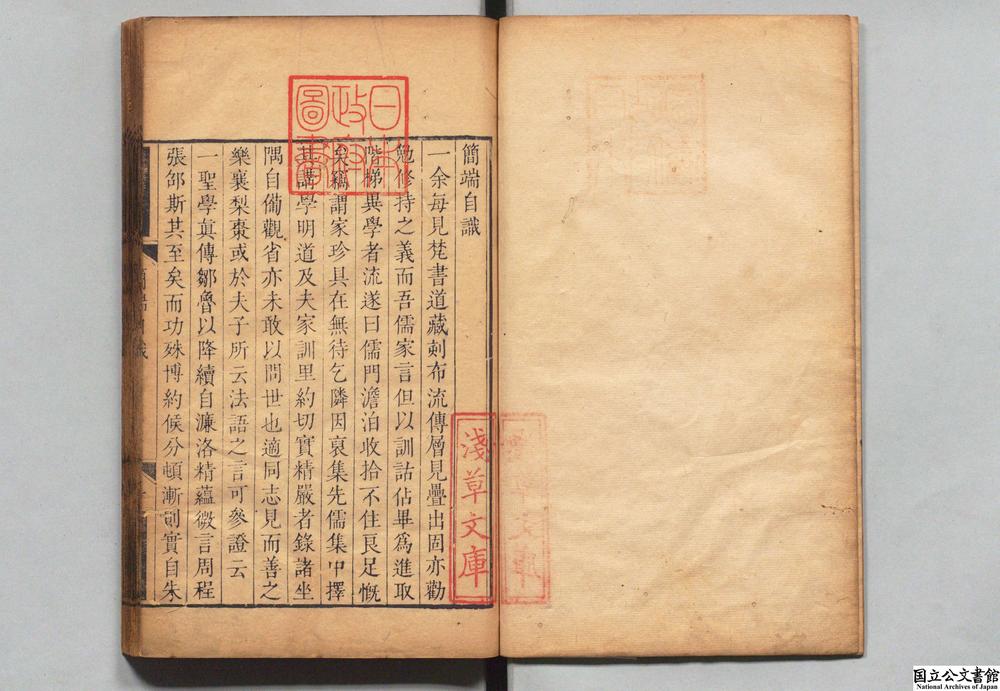 簡端自識
一余每見梵書道藏刻布流傳層見疊出固亦勸
勉修持之義而吾儒家言但以訓詁佔畢爲進取
階梯異學者流遂曰儒門澹泊收拾不住良足慨
矣竊謂家珍具在無待乞隣因裒集先儒集中擇
其講學明道及夫家訓里約切實精嚴者錄諸坐
隅自備觀省亦未敢以問世也適同志見而善之
樂襄梨棗或於夫子所云法語之言可參證云
一聖學眞傳鄒魯以降續自濂洛精蘊微言周程
張邵斯其至矣而功殊博約候分頓漸則實自朱
簡端自識
日本
政府
圖書
淺草文庫
国立公文書館
National Archives of Japan